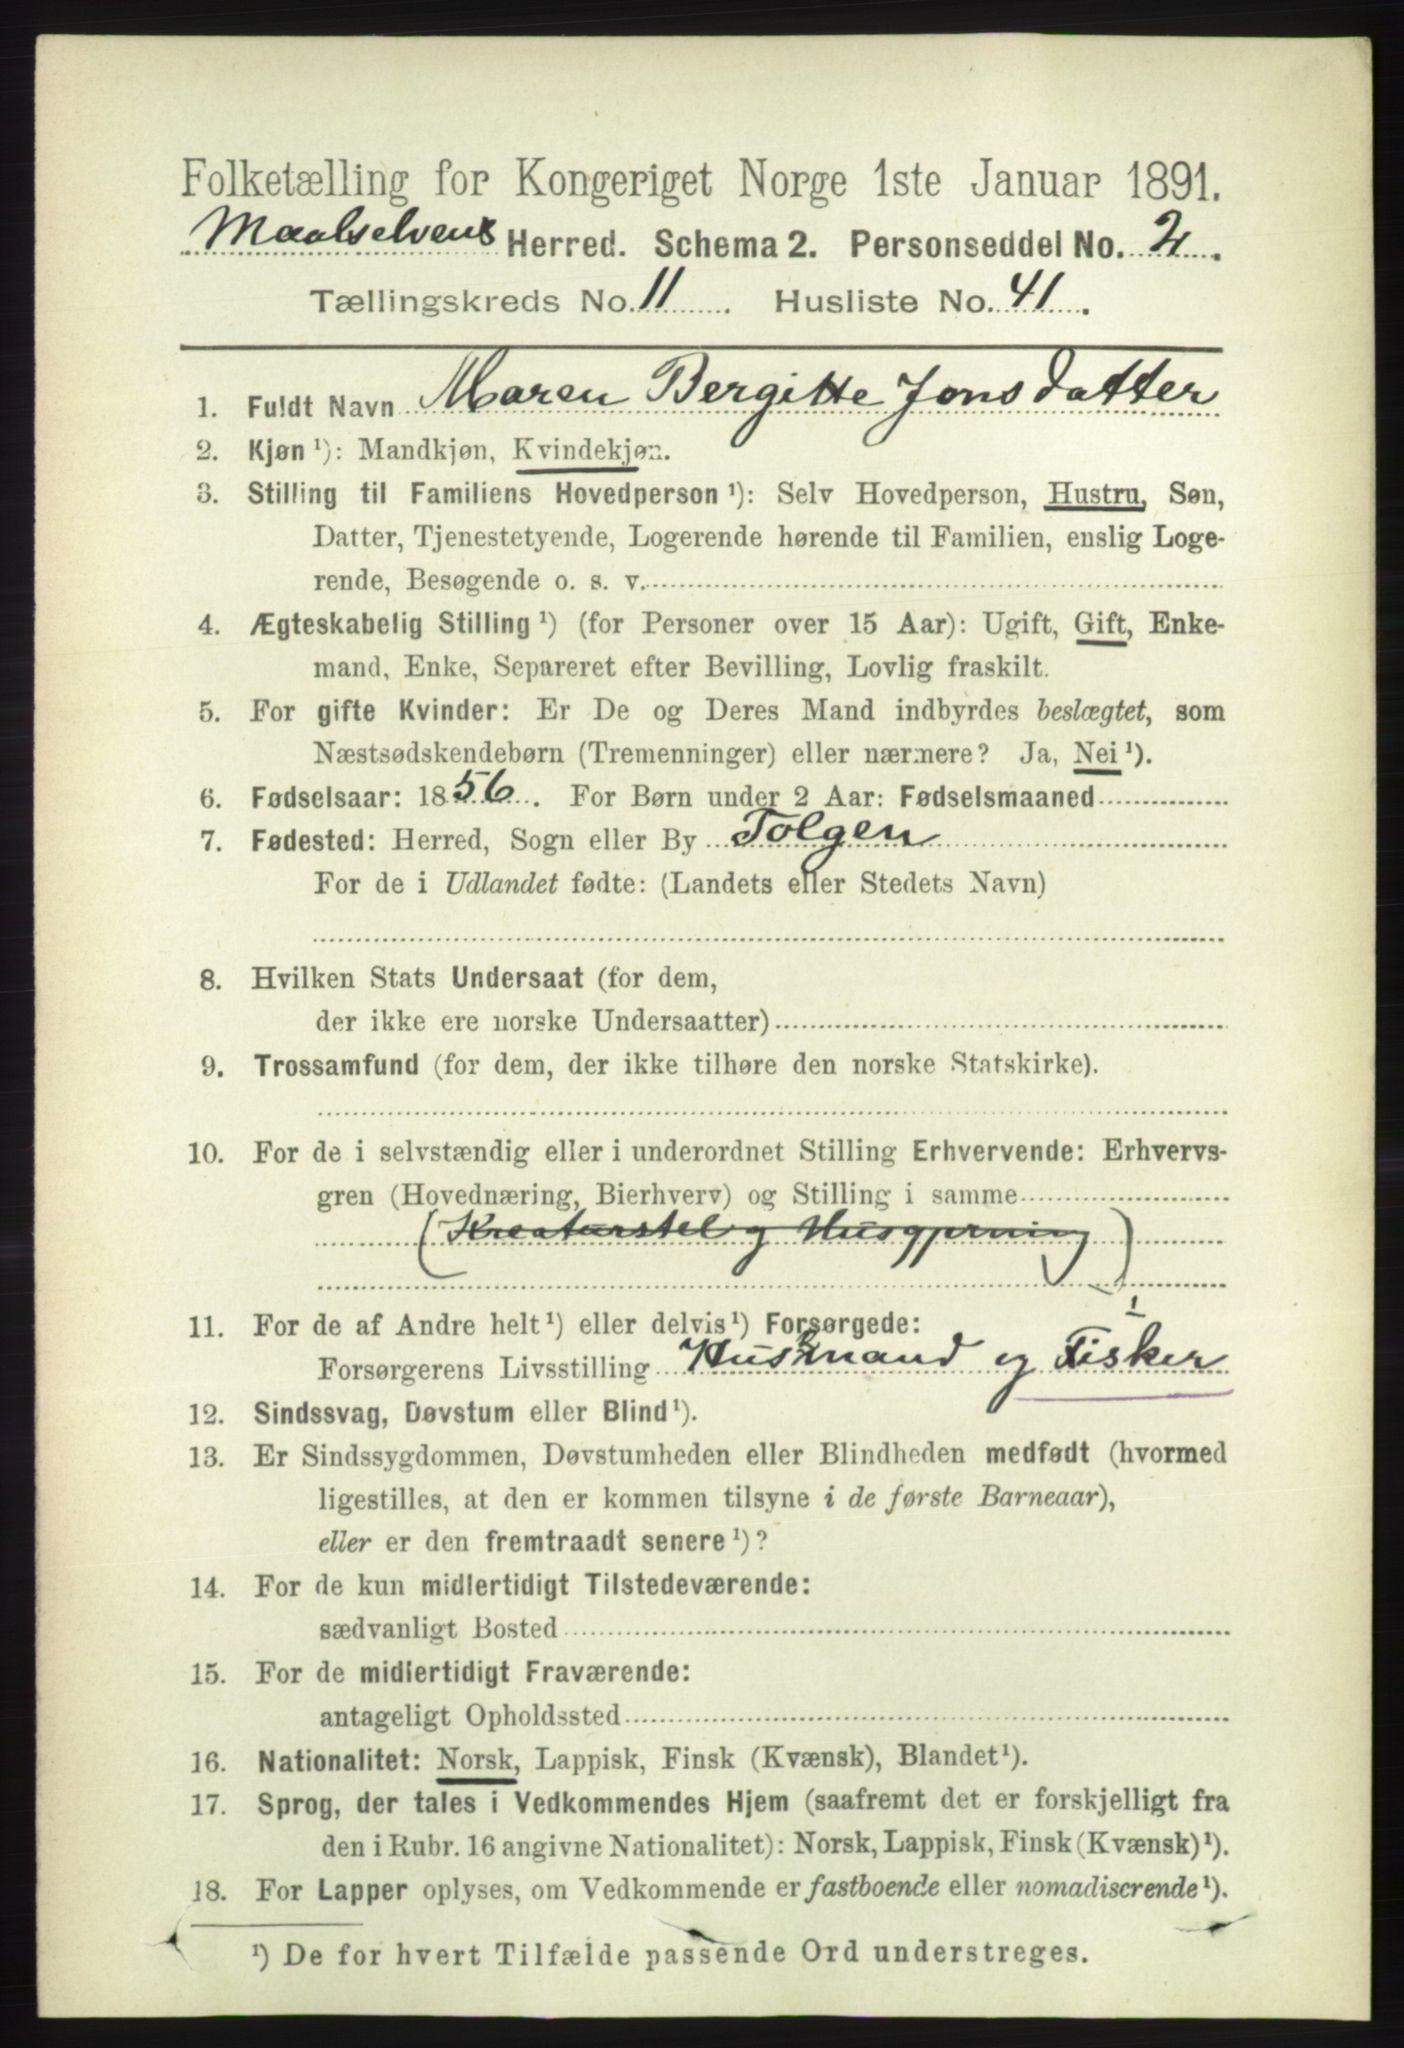 Folketælling for Kongeriget Norge 1ste Januar 1891.
Maalselvens Herred. Schema 2. Personseddel No. 2.
Tællingskreds No. 11. Husliste No. 41.
1. Fuldt Navn Maren Bergitte Jonsdatter
2. Kjøn ¹): Mandkjøn, Kvindekjøn.
3. Stilling til Familiens Hovedperson ¹): Selv Hovedperson, Hustru, Søn,
Datter, Tjenestetyende, Logerende hørende til Familien, enslig Loge-
rende, Besøgende o. s. v.
4. Ægteskabelig Stilling ¹) (for Personer over 15 Aar): Ugift, Gift, Enke-
mand, Enke, Separeret efter Bevilling, Lovlig fraskilt.
5. For gifte Kvinder: Er De og Deres Mand indbyrdes beslægtet, som
Næstsødskendebørn (Tremenninger) eller nærmere? Ja, Nei ¹).
6. Fødselsaar: 1856. For Børn under 2 Aar: Fødselsmaaned
7. Fødested: Herred, Sogn eller By Tolgen
For de i Udlandet fødte: (Landets eller Stedets Navn)
8. Hvilken Stats Undersaat (for dem,
der ikke ere norske Undersaatter)
9. Trossamfund (for dem, der ikke tilhøre den norske Statskirke).
10. For de i selvstændig eller i underordnet Stilling Erhvervende: Erhvervs-
gren (Hovednæring, Bierhverv) og Stilling i samme
(Kreaturstel og Husgjerning)
11. For de af Andre helt ¹) eller delvis ¹) Forsørgede:
Forsørgerens Livsstilling Husmand og Fisker
12. Sindssvag, Døvstum eller Blind ¹).
13. Er Sindssygdommen, Døvstumheden eller Blindheden medfødt (hvormed
ligestilles, at den er kommen tilsyne i de første Barneaar),
eller er den fremtraadt senere ¹)?
14. For de kun midlertidigt Tilstedeværende:
sædvanligt Bosted
15. For de midlertidigt Fraværende:
antageligt Opholdssted
16. Nationalitet: Norsk, Lappisk, Finsk (Kvænsk), Blandet ¹).
17. Sprog, der tales i Vedkommendes Hjem (saafremt det er forskjelligt fra
den i Rubr. 16 angivne Nationalitet): Norsk, Lappisk, Finsk (Kvænsk) ¹).
18. For Lapper oplyses, om Vedkommende er fastboende eller nomadiserende ¹).
¹) De for hvert Tilfælde passende Ord understreges.